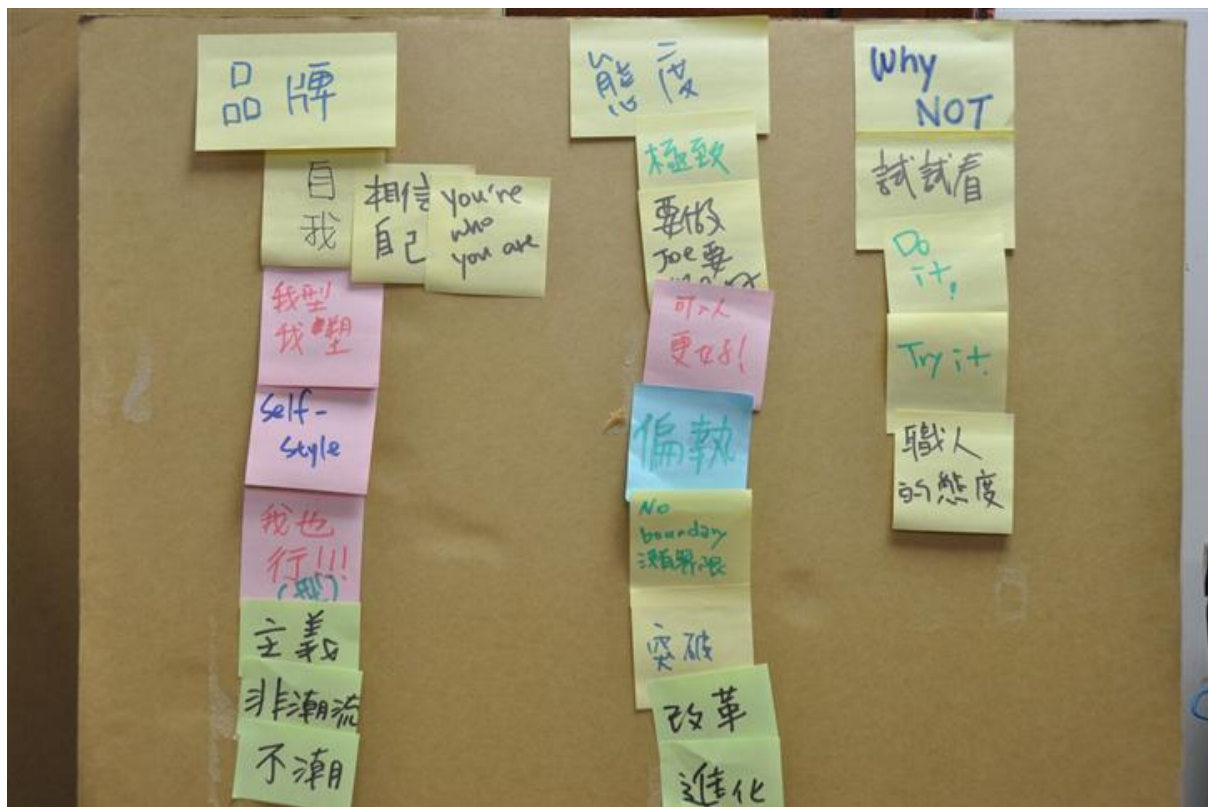 品牌
自
我
相信
自己
you're
who
you are
我型
我塑
Self-
style
我也
行!!!
主義
非潮流
不潮
態度
極致
要做
Joe要
可以
更好!
偏執
No
boundary
沒有界限
突破
改革
進化
Why
NOT
試試看
Do
it!
Try it.
職人
的態度